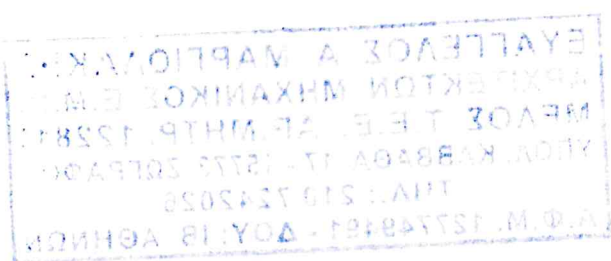 ΕΥΑΓΓΕΛΟΣ Α ΜΑΡΓΙΟΛΑΚ
ΑΡΧΙΤΕΚΤΩΝ ΜΗΧΑΝΙΚΟΣ Ε.Μ.
ΜΕΛΟΣ Τ.Ε.Ε. ΑΡ.ΜΗΤΡ. 12281
ΥΠΟΛ. ΚΑΒΒΑΘΑ 17 - 15773 ΖΩΓΡΑΦΟ
ΤΗΛ.: 210 7242026
Α.Φ.Μ. - ΔΟΥ: ΙΒ ΑΘΗΝΩΝ